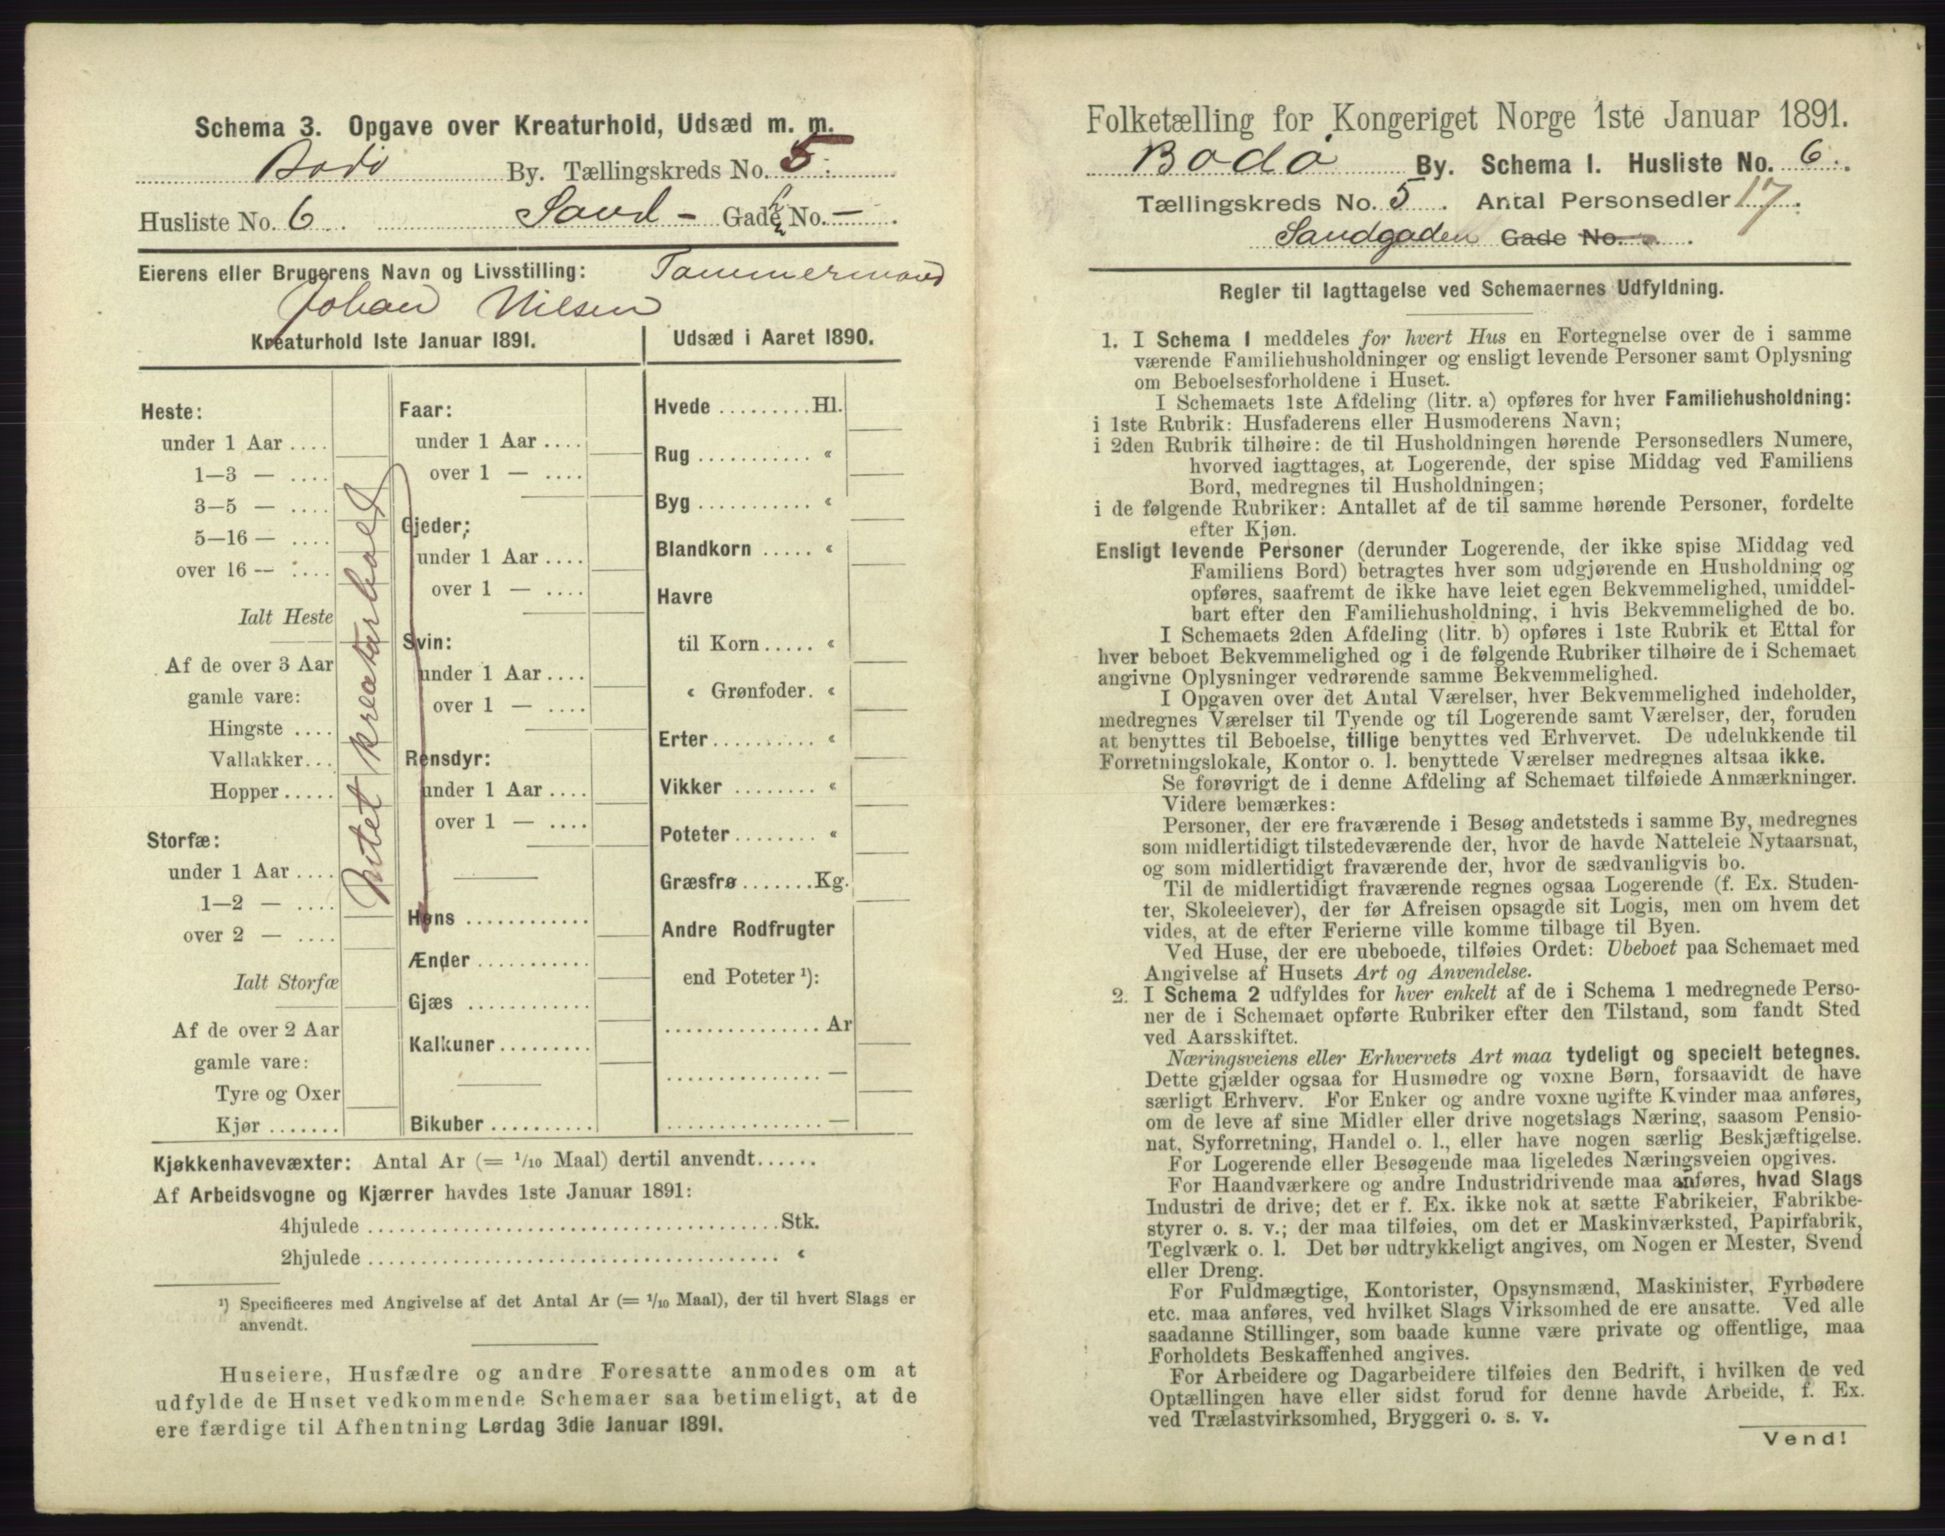 Schema 3. Opgave over Kreaturhold, Udsæd m. m.
Bodö By. Tællingskreds No. 5.
Husliste No. 6. Sand - Gaden No. -.
Eierens eller Brugerens Navn og Livsstilling: Tømmermand
Johan Nilsen
Kreaturhold 1ste Januar 1891.
Heste:
under 1 Aar ....
1—3 — ....
3—5 — ....
5—16 — ....
over 16 — ....
Ialt Heste
Af de over 3 Aar
gamle vare:
Hingste ....
Vallakker...
Hopper.....
Storfæ:
under 1 Aar ....
1—2 — ....
over 2 — ....
Ialt Storfæ
Af de over 2 Aar
gamle vare:
Tyre og Oxer
Kjør .......
Intet kreaturhold
Faar:
under 1 Aar ....
over 1 — ....
Gjeder:
under 1 Aar ....
over 1 — ....
Svin:
under 1 Aar ....
over 1 — ....
Rensdyr:
under 1 Aar ....
over 1 — ....
Høns ............
Ænder ...........
Gjæs ............
Kalkuner .........
Bikuber ..........
Udsæd i Aaret 1890.
Hvede .........Hl.
Rug ........... «
Byg ........... «
Blandkorn ..... «
Havre
til Korn ..... «
« Grønfoder. «
Erter .......... «
Vikker ........ «
Poteter ........ «
Græsfrø .......Kg.
Andre Rodfrugter
end Poteter ¹):
...............Ar
............... —
............... —
Kjøkkenhavevæxter: Antal Ar (= 1/10 Maal) dertil anvendt......
Af Arbeidsvogne og Kjærrer havdes 1ste Januar 1891:
4hjulede ........................................Stk.
2hjulede ........................................ «
¹) Specificeres med Angivelse af det Antal Ar (= 1/10 Maal), der til hvert Slags er
anvendt.
Huseiere, Husfædre og andre Foresatte anmodes om at
udfylde de Huset vedkommende Schemaer saa betimeligt, at de
ere færdige til Afhentning Lørdag 3die Januar 1891.
Folketælling for Kongeriget Norge 1ste Januar 1891.
Bodö By. Schema I. Husliste No. 6.
Tællingskreds No. 5. Antal Personsedler 17.
Sandgaden Gade No.
Regler til Iagttagelse ved Schemaernes Udfyldning.
1. I Schema I meddeles for hvert Hus en Fortegnelse over de i samme
værende Familiehusholdninger og ensligt levende Personer samt Oplysning
om Beboelsesforholdene i Huset.
I Schemaets 1ste Afdeling (litr. a) opføres for hver Familiehusholdning:
i 1ste Rubrik: Husfaderens eller Husmoderens Navn;
i 2den Rubrik tilhøire: de til Husholdningen hørende Personsedlers Numere,
hvorved iagttages, at Logerende, der spise Middag ved Familiens
Bord, medregnes til Husholdningen;
i de følgende Rubriker: Antallet af de til samme hørende Personer, fordelte
efter Kjøn.
Ensligt levende Personer (derunder Logerende, der ikke spise Middag ved
Familiens Bord) betragtes hver som udgjørende en Husholdning og
opføres, saafremt de ikke have leiet egen Bekvemmelighed, umiddel-
bart efter den Familiehusholdning, i hvis Bekvemmelighed de bo.
I Schemaets 2den Afdeling (litr. b) opføres i 1ste Rubrik et Ettal for
hver beboet Bekvemmelighed og i de følgende Rubriker tilhøire de i Schemaet
angivne Oplysninger vedrørende samme Bekvemmelighed.
I Opgaven over det Antal Værelser, hver Bekvemmelighed indeholder,
medregnes Værelser til Tyende og til Logerende samt Værelser, der, foruden
at benyttes til Beboelse, tillige benyttes ved Erhvervet. De udelukkende til
Forretningslokale, Kontor o. l. benyttede Værelser medregnes altsaa ikke.
Se forøvrigt de i denne Afdeling af Schemaet tilføiede Anmærkninger.
Videre bemærkes:
Personer, der ere fraværende i Besøg andetsteds i samme By, medregnes
som midlertidigt tilstedeværende der, hvor de havde Natteleie Nytaarsnat,
og som midlertidigt fraværende der, hvor de sædvanligvis bo.
Til de midlertidigt fraværende regnes ogsaa Logerende (f. Ex. Studen-
ter, Skoleelever), der før Afreisen opsagde sit Logis, men om hvem det
vides, at de efter Ferierne ville komme tilbage til Byen.
Ved Huse, der ere ubeboede, tilføies Ordet: Ubeboet paa Schemaet med
Angivelse af Husets Art og Anvendelse.
2. I Schema 2 udfyldes for hver enkelt af de i Schema 1 medregnede Perso-
ner de i Schemaet opførte Rubriker efter den Tilstand, som fandt Sted
ved Aarsskiftet.
Næringsveiens eller Erhvervets Art maa tydeligt og specielt betegnes.
Dette gjælder ogsaa for Husmødre og voxne Børn, forsaavidt de have
særligt Erhverv. For Enker og andre voxne ugifte Kvinder maa anføres,
om de leve af sine Midler eller drive nogetslags Næring, saasom Pensio-
nat, Syforretning, Handel o. l., eller have nogen særlig Beskjæftigelse.
For Logerende eller Besøgende maa ligeledes Næringsveien opgives.
For Haandværkere og andre Industridrivende maa anføres, hvad Slags
Industri de drive; det er f. Ex. ikke nok at sætte Fabrikeier, Fabrikbe-
styrer o. s. v.; der maa tilføies, om det er Maskinværksted, Papirfabrik,
Teglværk o. l. Det bør udtrykkeligt angives, om Nogen er Mester, Svend
eller Dreng.
For Fuldmægtige, Kontorister, Opsynsmænd, Maskinister, Fyrbødere
etc. maa anføres, ved hvilket Slags Virksomhed de ere ansatte. Ved alle
saadanne Stillinger, som baade kunne være private og offentlige, maa
Forholdets Beskaffenhed angives.
For Arbeidere og Dagarbeidere tilføies den Bedrift, i hvilken de ved
Optællingen have eller sidst forud for denne havde Arbeide, f. Ex.
ved Trælastvirksomhed, Bryggeri o. s. v.
Vend!